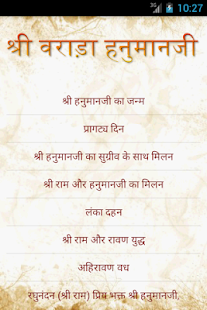 3G 10:27
श्री वराडा हनुमानजी
श्री हनुमानजी का जन्म
प्रागट्य दिन
श्री हनुमानजी का सुग्रीव के साथ मिलन
श्री राम और हनुमानजी का मिलन
लंका दहन
श्री राम और रावण युद्ध
अहिरावण वध
रघुनंदन (श्री राम) प्रिय भक्त श्री हनुमानजी.